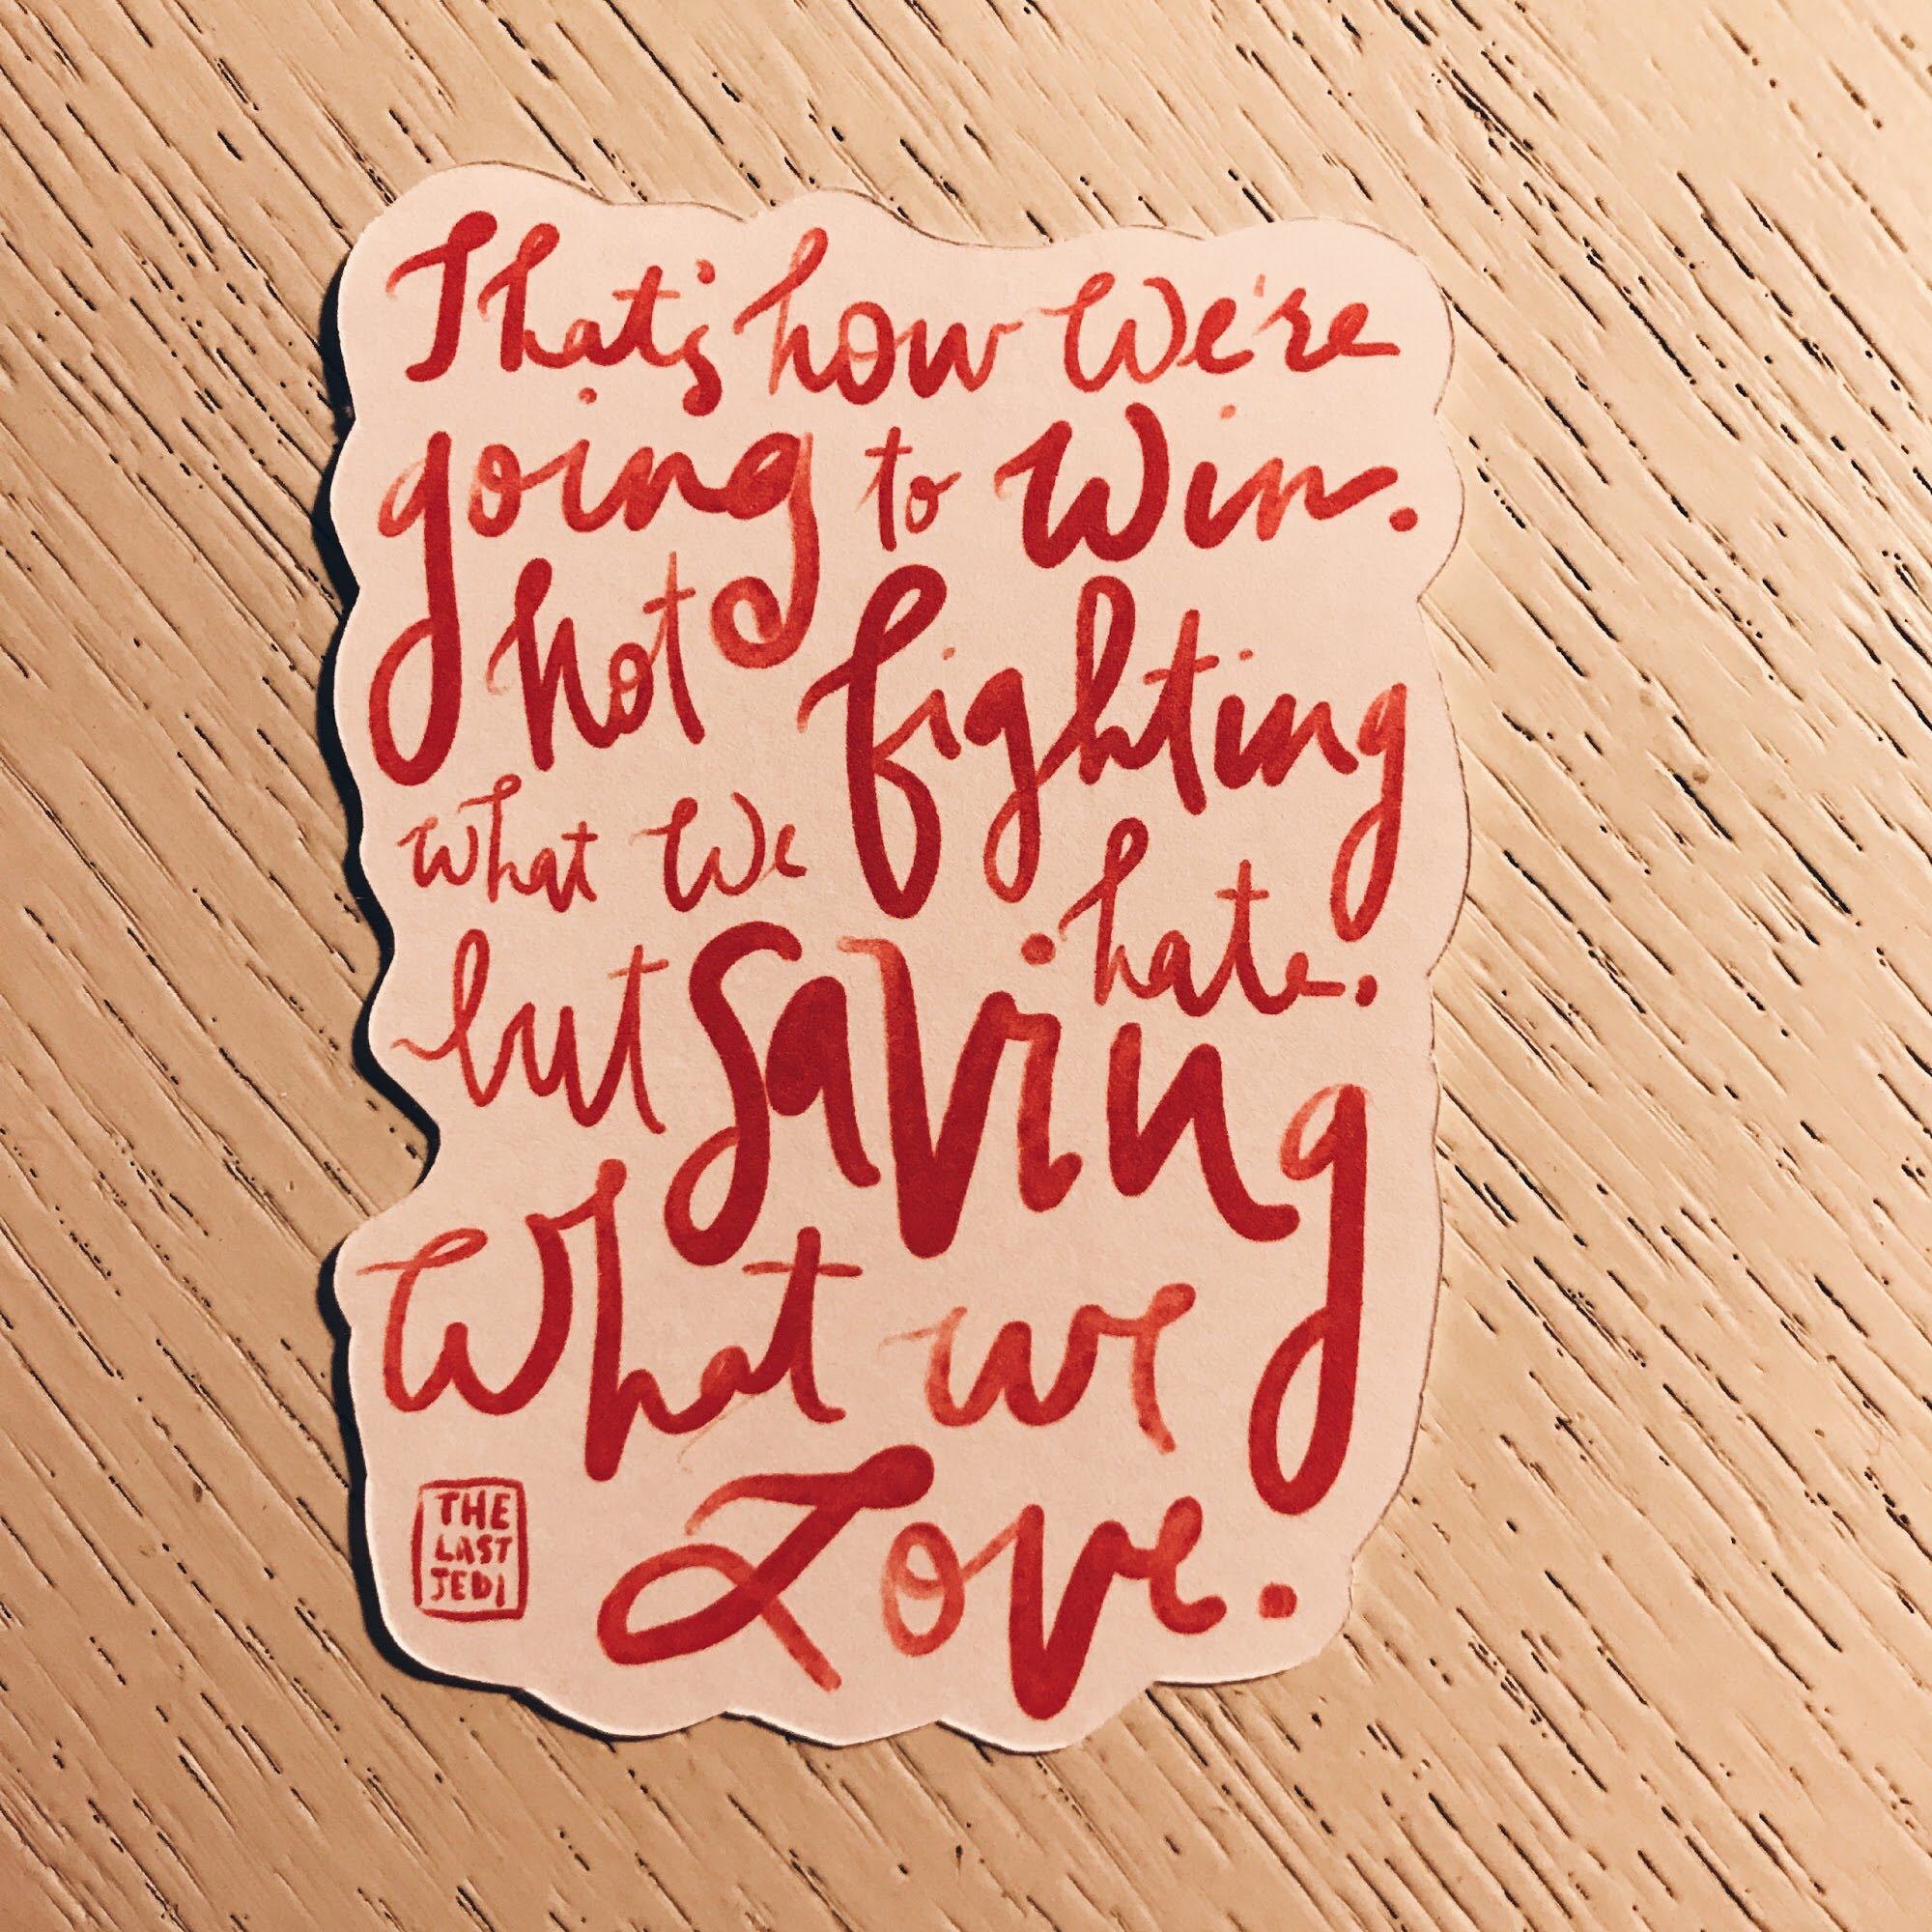 That's how We're
going to Win.
Not fighting
what We hate.
but saving
What we
Love.
THE
LAST
JEDI